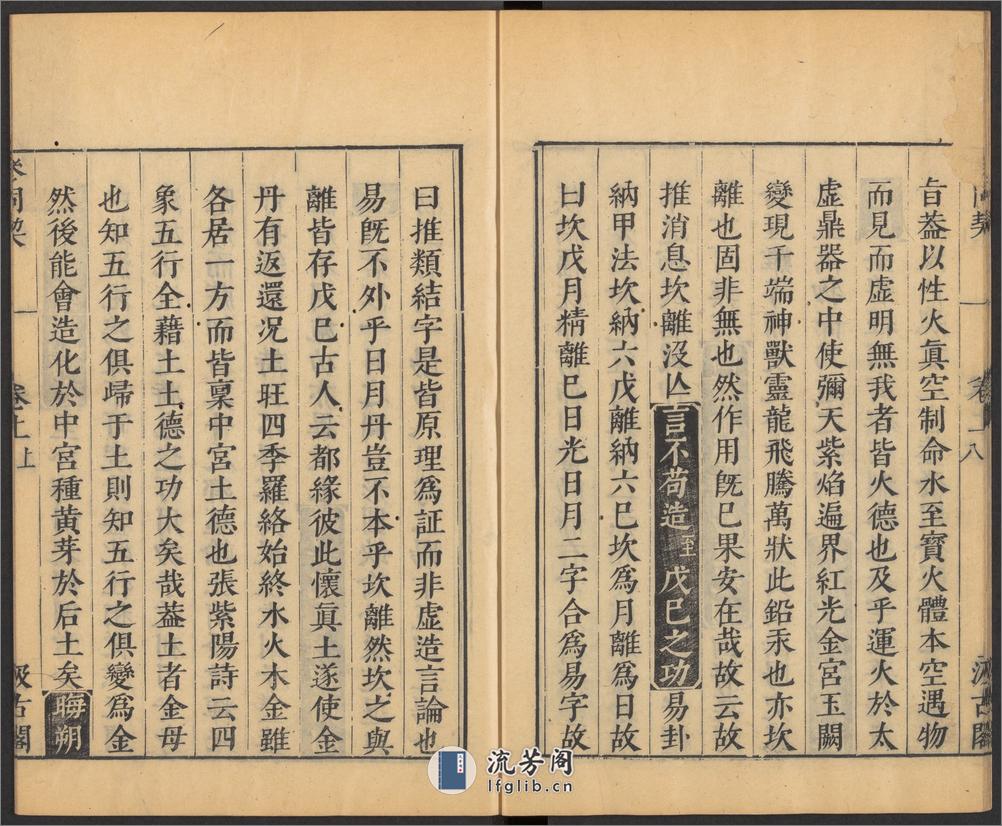 旨葢以性火眞空制命水至寳火體本空遇物
而見而虛明無我者皆火德也及乎運火於太
虛鼎器之中使彌天紫焰遍界紅光金宮玉闕
變現千端神獸靈龍飛騰萬狀此鉛汞也亦坎
離也固非無也然作用旣已果安在哉故云故
推消息坎離没亾言不苟造至戊巳之功易卦
納甲法坎納六戊離納六巳坎爲月離爲日故
曰坎戊月精離巳日光日月二字合爲易字故
曰推類結字是皆原理爲証而非虛造言論也
易旣不外乎日月丹豈不本乎坎離然坎之與
離皆存戊巳古人云都緣彼此懷眞土遂使金
丹有返還况土旺四季羅絡始終水火木金雖
各居一方而皆稟中宮土德也張紫陽詩云四
象五行全藉土土德之功大矣哉葢土者金母
也知五行之俱歸于土則知五行之俱變爲金
然後能會造化於中宮種黄芽於后土矣晦朔
卷上上
汲古閣
流芳阁
lfglib.cn